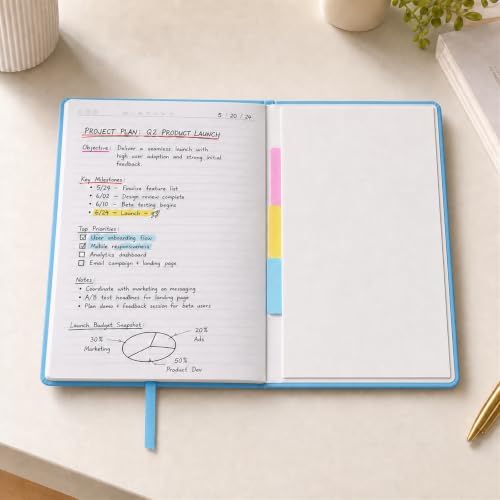 5 / 20 / 24
PROJECT PLAN: Q2 PRODUCT LAUNCH
Objective: Deliver a seamless launch with
high user adoption and strong initial
feedback.
Key Milestones:
• 5/29 - Finalize feature list
• 6/02 - Design review complete
• 6/10 - Beta testing begins
• 6/24 - Launch -
Top Priorities:
☑ User onboarding flow
☑ Mobile responsiveness
☐ Analytics dashboard
☐ Email campaign + landing page
Notes:
• Coordinate with marketing on messaging
• A/B test headlines for landing page
• Plan demo + feedback session for beta users
Launch Budget Snapshot:
20%
Ads
30%
Marketing
50%
Product Dev